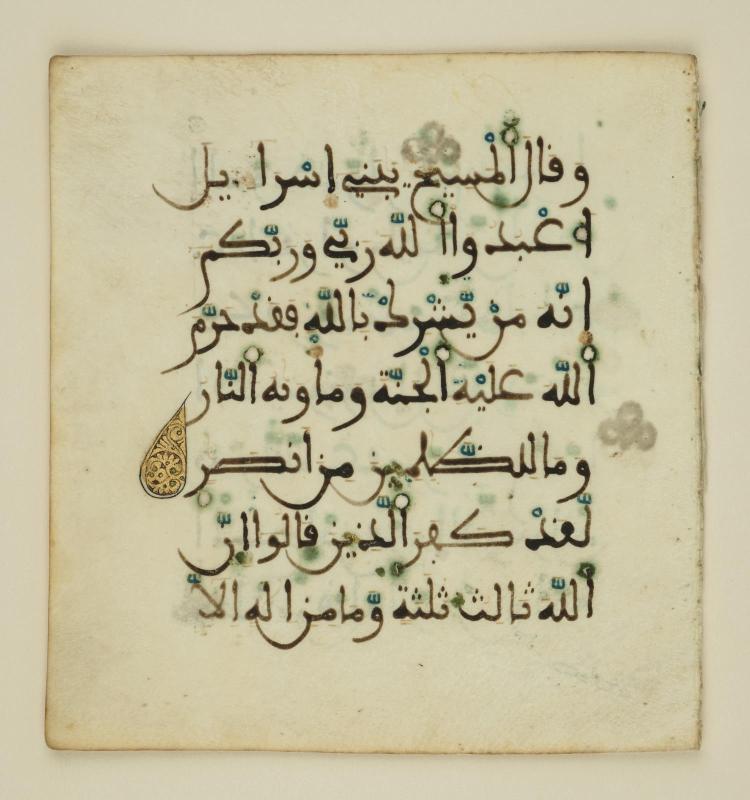 وقال المسيح يبني اسرايل
اعبدوا الله ربّي وربّكم
انّه من يّشرك بالله فقد حرّم
الله عليه الجنّة وماويه النّار
وما للظّلمين من انصر
لّقد كفر الّذين قالوا انّ
الله ثالث ثلثة وّما من اله الّا